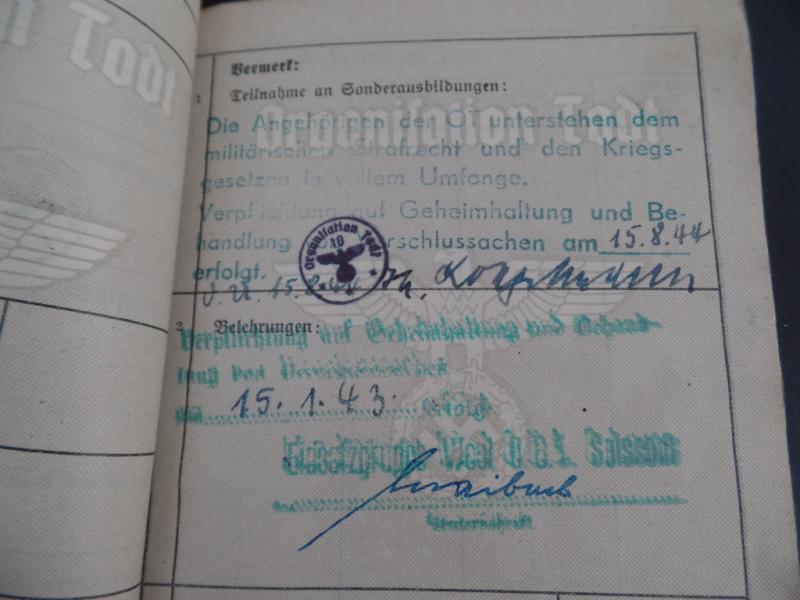 n Todt
Vermerk:
1 Teilnahme an Sonderausbildungen:
Organisation Todt
Die Angehörigen der OT unterstehen dem
militärischen Strafrecht und den Kriegs-
gesetzen in vollem Umfange.
Verpflichtung auf Geheimhaltung und Be-
handlung erschlussachen am 15.8.44
erfolgt.
Organisation Todt
10
15.8.44
2 Belehrungen:
Verpflichtung auf Geheimhaltung und Behand-
lung von Verschlussachen
am 15.1.43. erfolgt
Einsatzgruppe West
Unterschrift